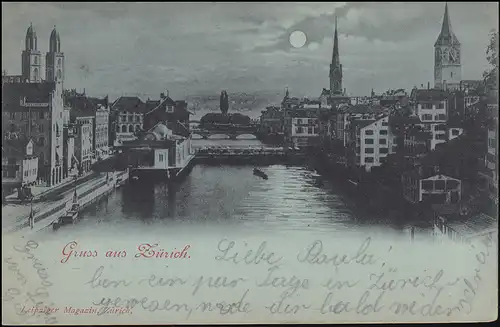 Gruss aus Zürich.
Liebe Paula!
ben ein par Tags in Zürich
gewesen, werde dir bald wieder
Leipziger Magazin, Zürich.